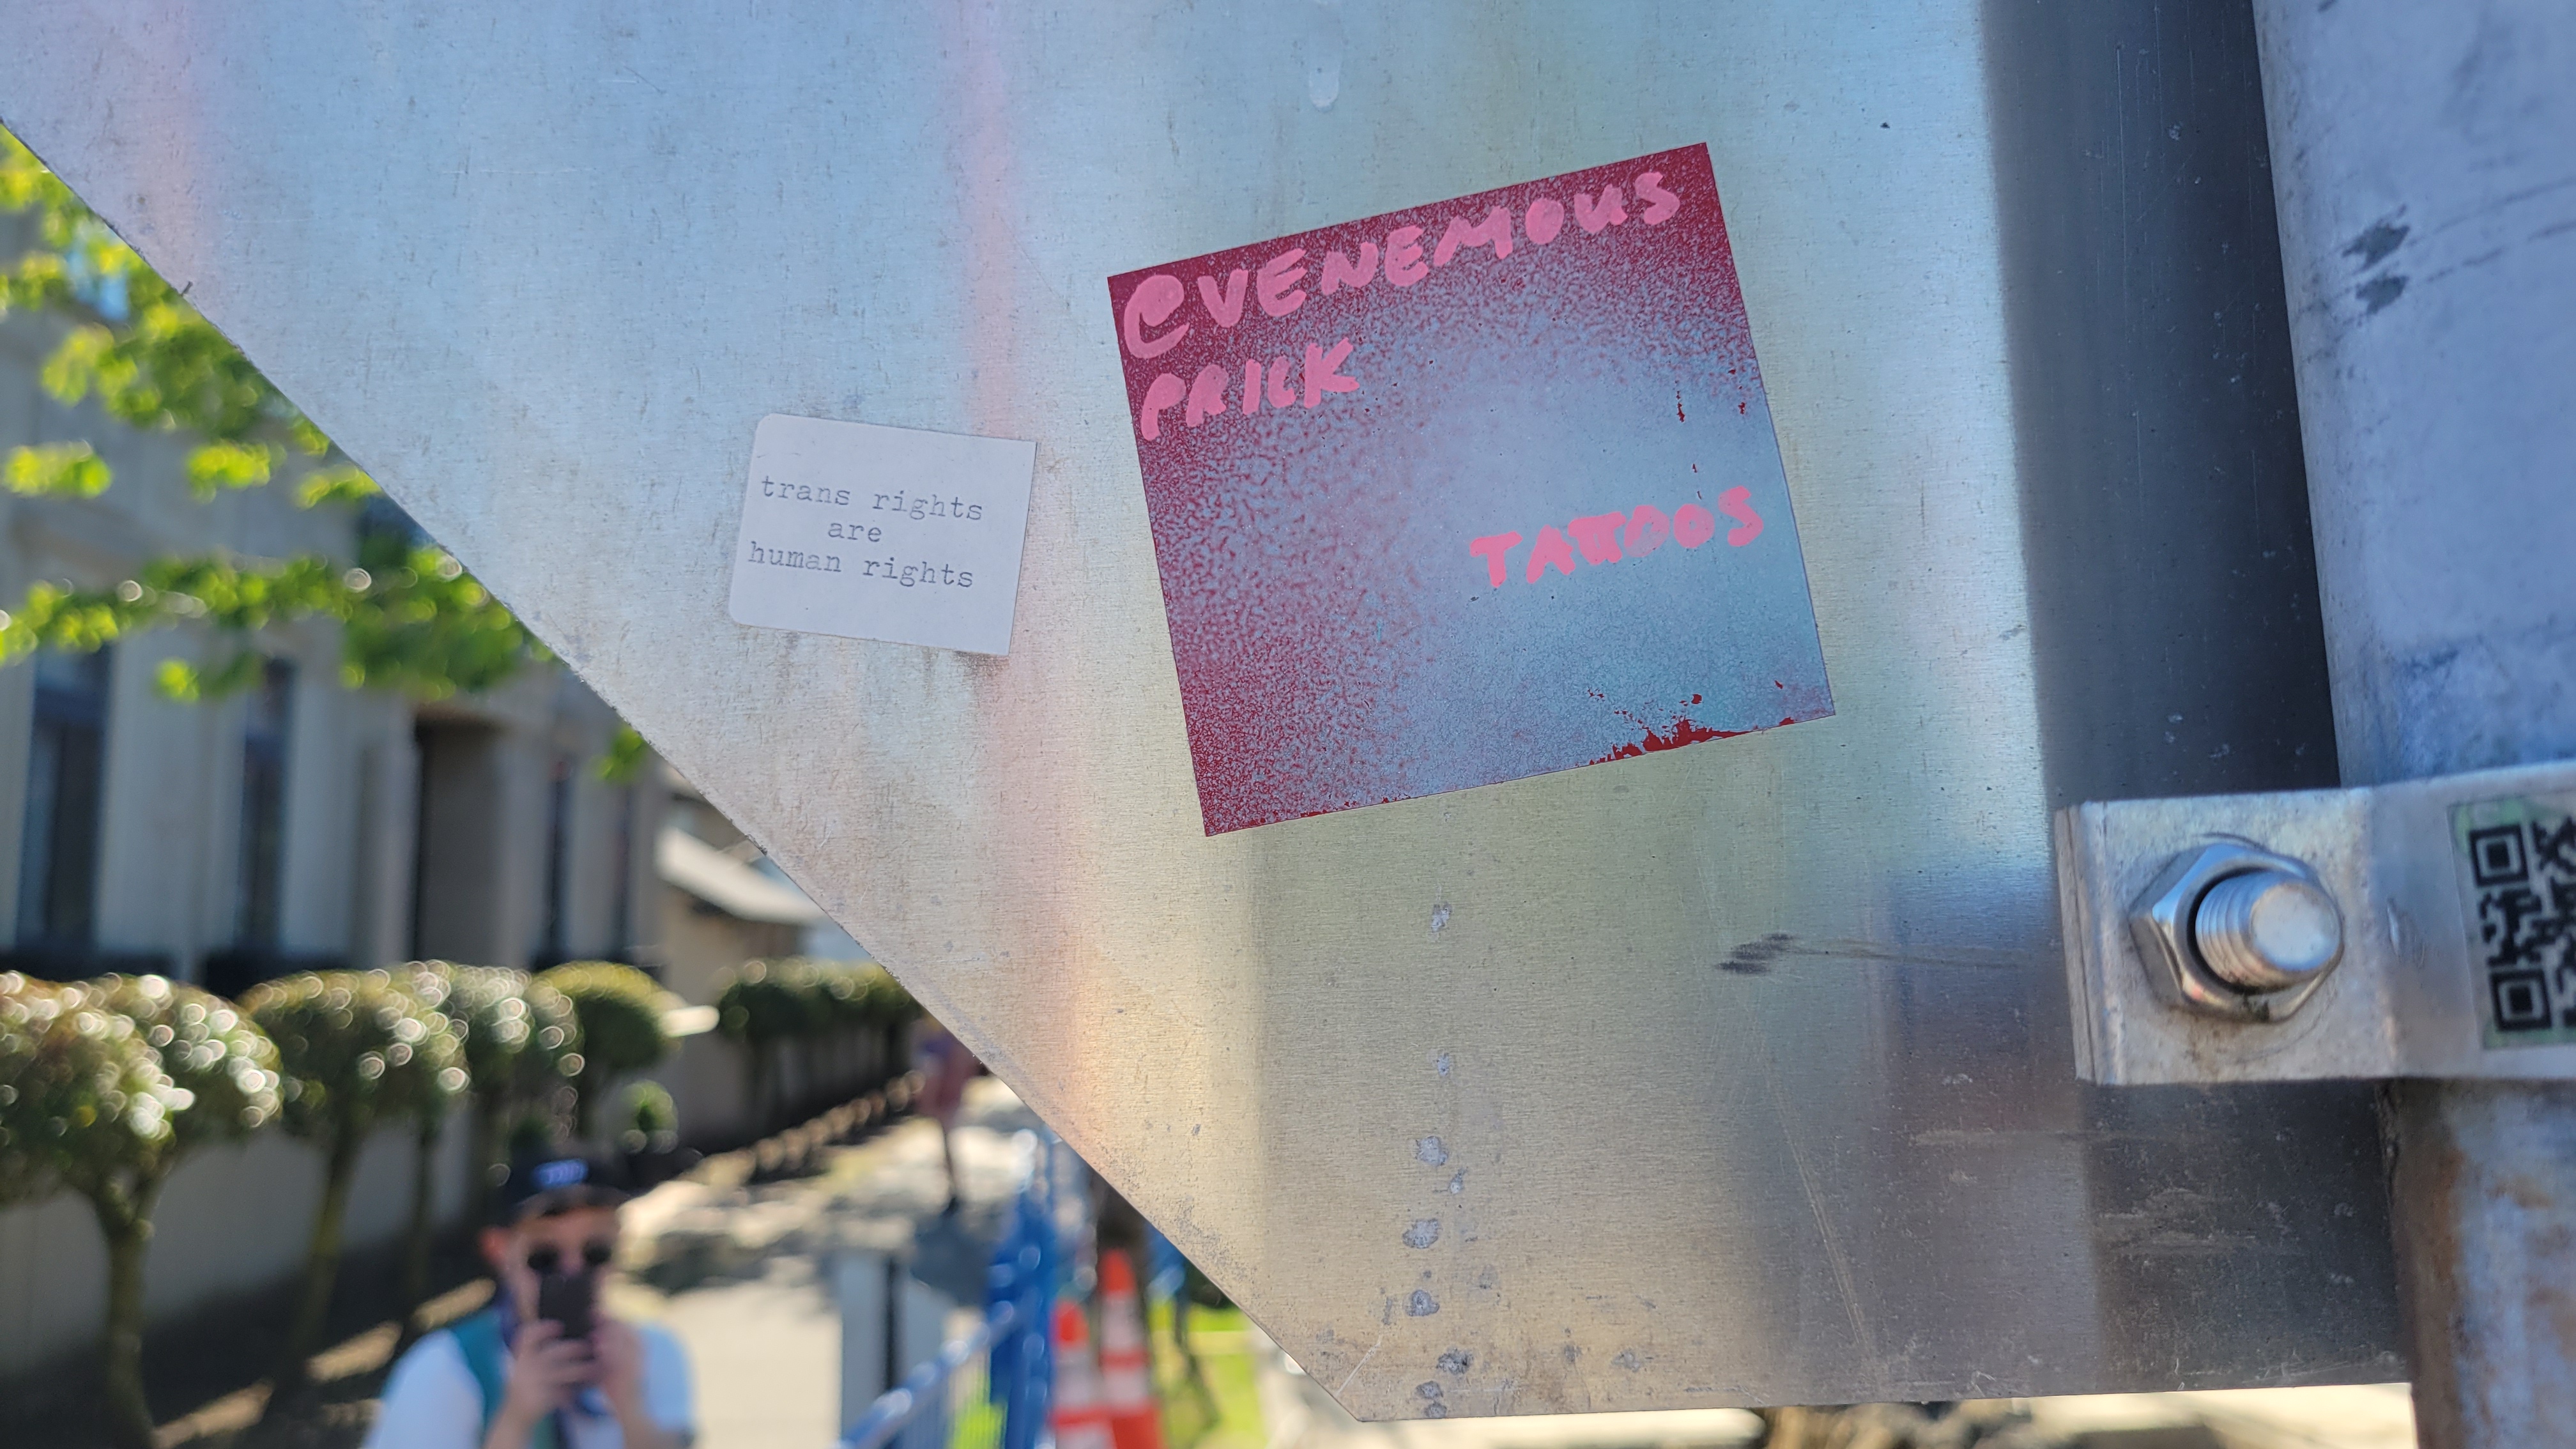 trans rights
are
human rights
@VENEMOUS
PRICK
TATTOOS